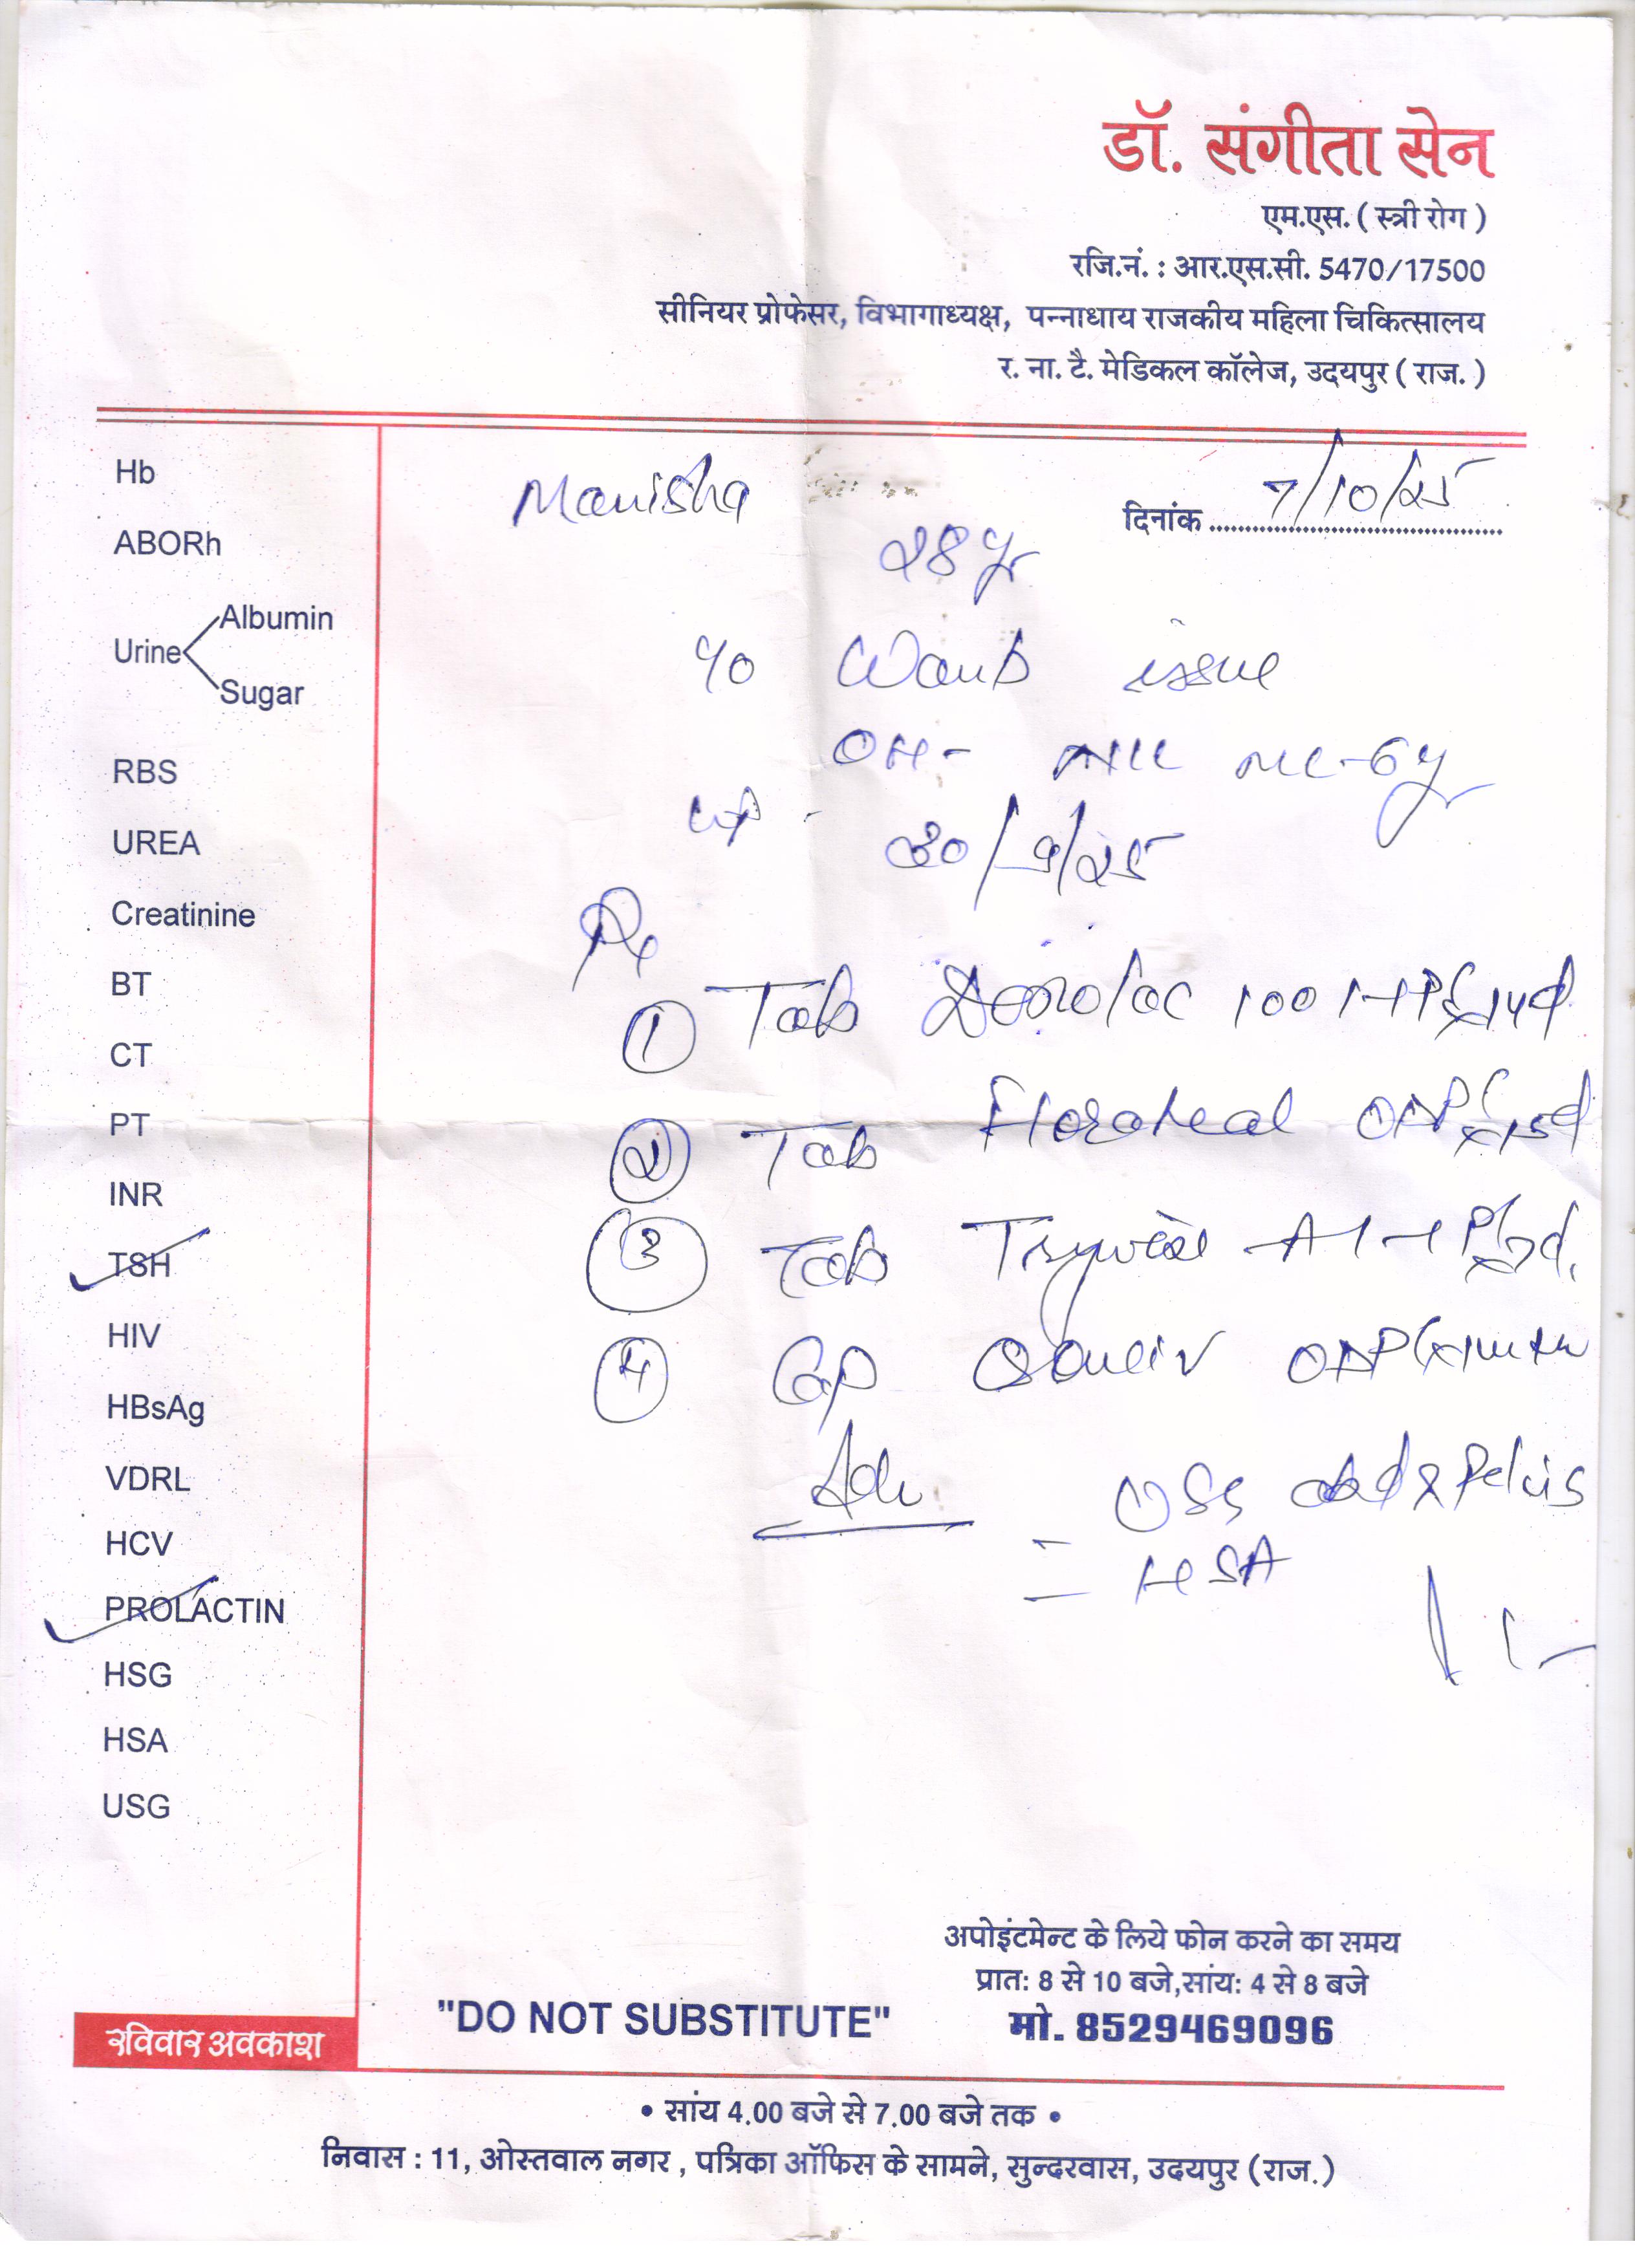 डॉ. संगीता सेन
एम.एस. ( स्त्री रोग )
रजि.नं. : आर.एस.सी. 5470/17500
सीनियर प्रोफेसर, विभागाध्यक्ष, पन्नाधाय राजकीय महिला चिकित्सालय
र. ना. टै. मेडिकल कॉलेज, उदयपुर ( राज. )
Manisha
दिनांक 7/10/25
28 yr
c/o Wants issue
OH- Nil ML-6y
30/9/25
Rx
① Tab 100 1-1 P x 14d
② Tab Floraheal OD P x 15d
③ Tab 1-1 P x 7d.
④ Cap OD P
Adv
USG abd & Pelvis
= HSA
Hb
ABORh
Urine Albumin
Sugar
RBS
UREA
Creatinine
BT
CT
PT
INR
TSH
HIV
HBsAg
VDRL
HCV
PROLACTIN
HSG
HSA
USG
रविवार अवकाश
"DO NOT SUBSTITUTE"
अपोइंटमेन्ट के लिये फोन करने का समय
प्रात: 8 से 10 बजे,सांय: 4 से 8 बजे
मो. 8529469096
• सांय 4.00 बजे से 7.00 बजे तक •
निवास : 11, ओस्तवाल नगर , पत्रिका ऑफिस के सामने, सुन्दरवास, उदयपुर (राज.)